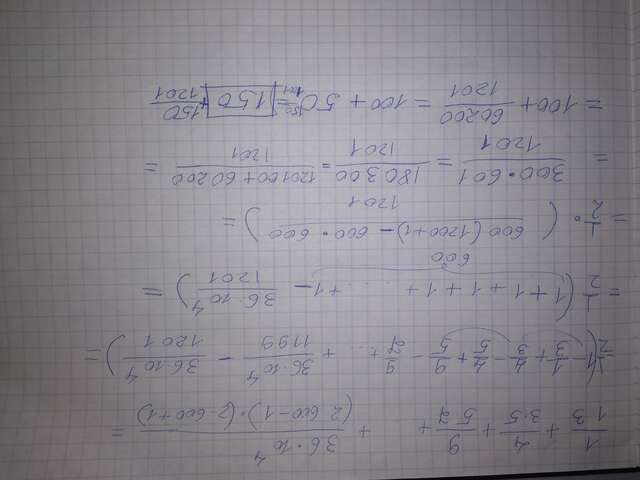 1/(1 3) + 4/(3·5) + 9/(5 7) + + 36·10⁴/((2·600-1)·(2·600+1)) =
= 1/2 (1 - 1/3 + 4/3 - 4/5 + 9/5 - 9/7 + ... + 36·10⁴/1199 - 36·10⁴/1201) =
= 1/2 (1+1+1+1+ ... +1 - 36·10⁴/1201) =
600
= 1/2 · (600(1200+1) - 600·600 / 1201) =
= 300·601/1201 = 180300/1201 = 120100+60200/1201 =
= 100 + 60200/1201 = 100 + 50 150/1201 = 150 + 150/1201